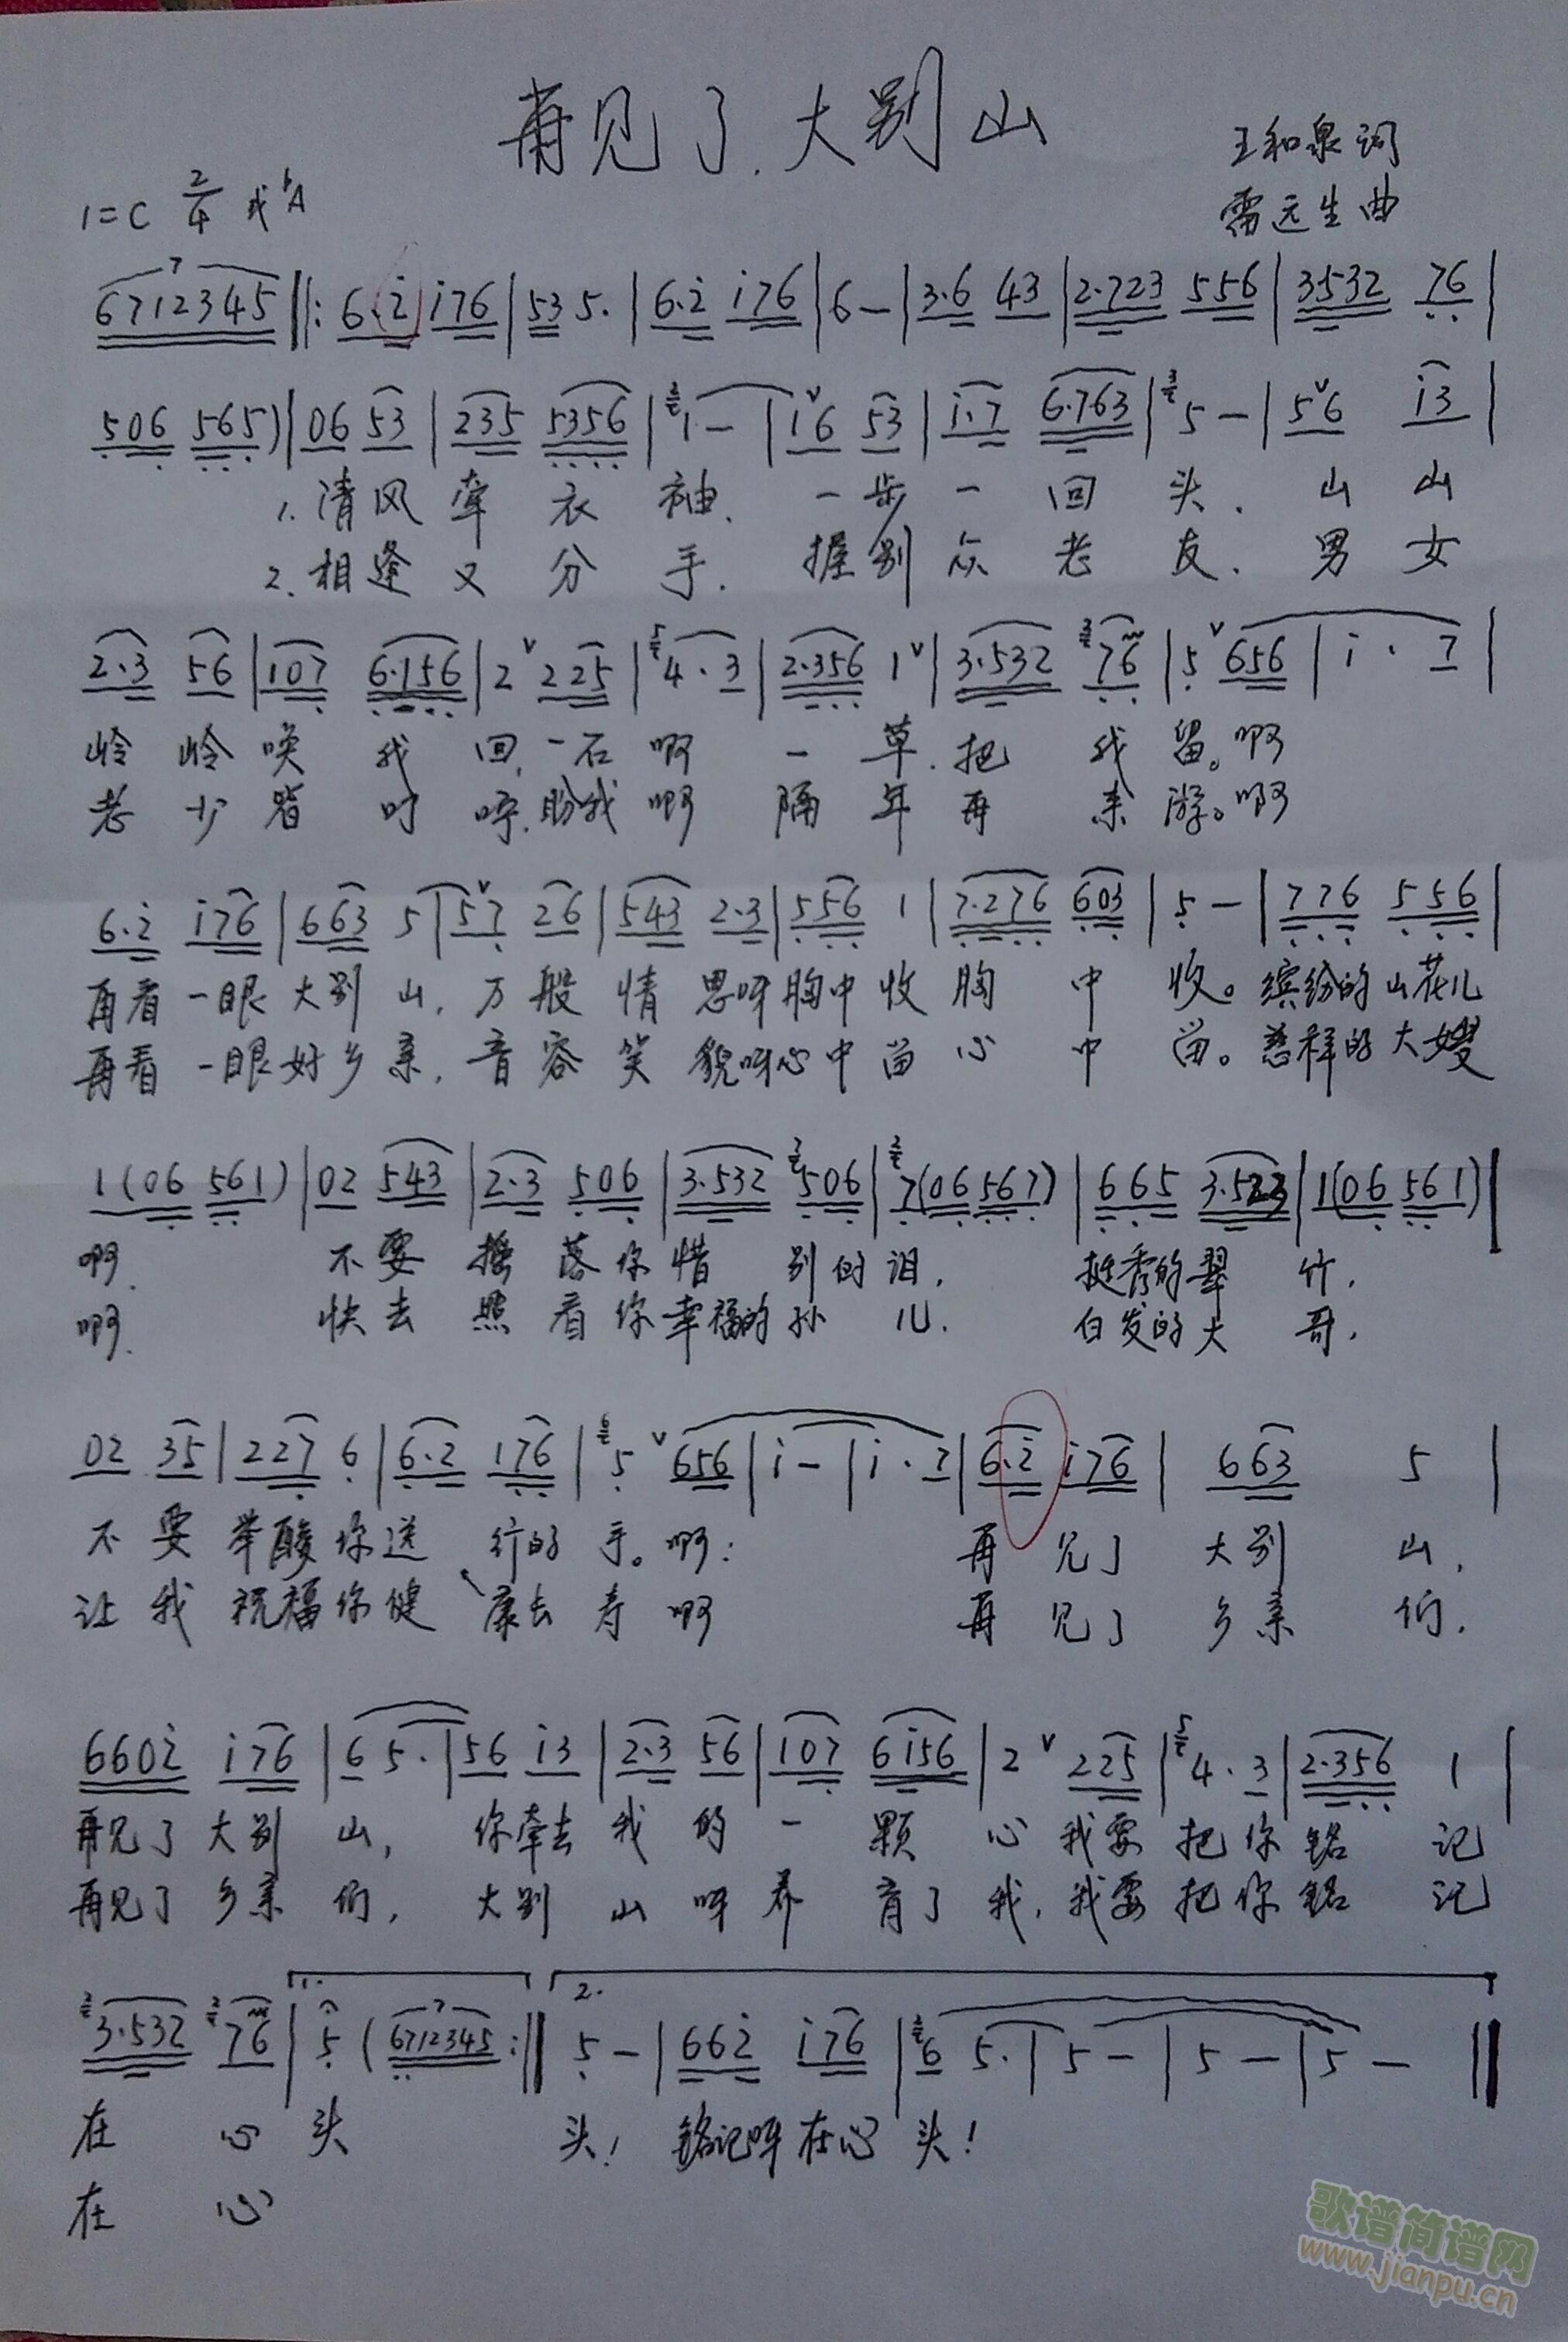 再见了.大别山
王和泉词
1=C 2/4 或bA
雷远生曲
6712345 ‖: 6·i i76 | 53 5· | 6·i i76 | 6 – | 3·6 43 | 2·723 556 | 3532 76 |
506 565) | 06 53 | 235 5356 | 1 – | i6 53 | i·7 6·763 | 5 – | 56 i3 |
1.清风牵衣袖.一步一回头.山山
2.相逢又分手.握别众老友.男女
2·3 56 | 107 6·156 | 2 225 | 4·3 | 2·356 1 | 3·532 76 | 5 656 | i·7 |
岭岭唤我回,一石啊一草.把我留。啊
老少皆叮咛.盼我啊隔年再来游。啊
6·i i76 | 663 5 | 57 26 | 543 2·3 | 556 1 | 7·276 603 | 5 – | 776 556 |
再看一眼大别山,万般情思呀胸中收胸中收。缤纷的山花儿
再看一眼好乡亲,音容笑貌呀心中留心中留。慈祥的大嫂
1(06 561) | 02 543 | 2·3 506 | 3·532 506 | 7(06 567) | 665 3·523 | 1(06 561) |
啊.不要摇落你惜别的泪,挺秀的翠竹,
啊.快去照看你幸福的孙儿.白发的大哥,
02 35 | 227 6 | 6·2 176 | 5 656 | i – | i·7 | 6·i i76 | 663 5 |
不要举酸你送行的手。啊:再见了大别山,
让我祝福你健、康去寿啊再见了乡亲们,
6602 i76 | 6 5· | 56 i3 | 2·3 56 | 107 6i56 | 2 225 | 4·3 | 2·356 1 |
再见了大别山,你牵去我的一颗心我要把你铭记
再见了乡亲们,大别山呀养育了我,我要把你铭记
3·532 76 | 1. 5 (6712345 :‖ 2. 5 – | 662 i76 | 6 5· | 5 – | 5 – | 5 – ‖
在心头头!铭记呀在心头!
在心
歌谱简谱网
www.jianpu.cn